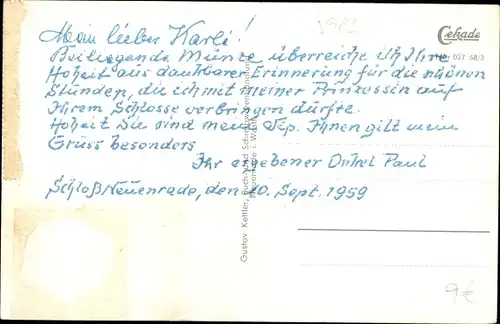 1983
Mein lieber Karli!
Cekade
027 58/3
Beiliegende Münze überreiche ich Ihrer
Hoheit aus dankbarer Erinnerung für die schönen
Stunden, die ich mit meiner Prinzessin auf
Ihrem Schlosse verbringen durfte.
Hoheit Sie sind mein Tip. Ihnen gilt mein
Gruss besonders.
Ihr ergebener Onkel Paul
Schloß Neuenrade, den 10. Sept. 1959
Gustav Kettler, Buch- und Schreibwarenhandlung
Neuenrade i. Westf.
9€